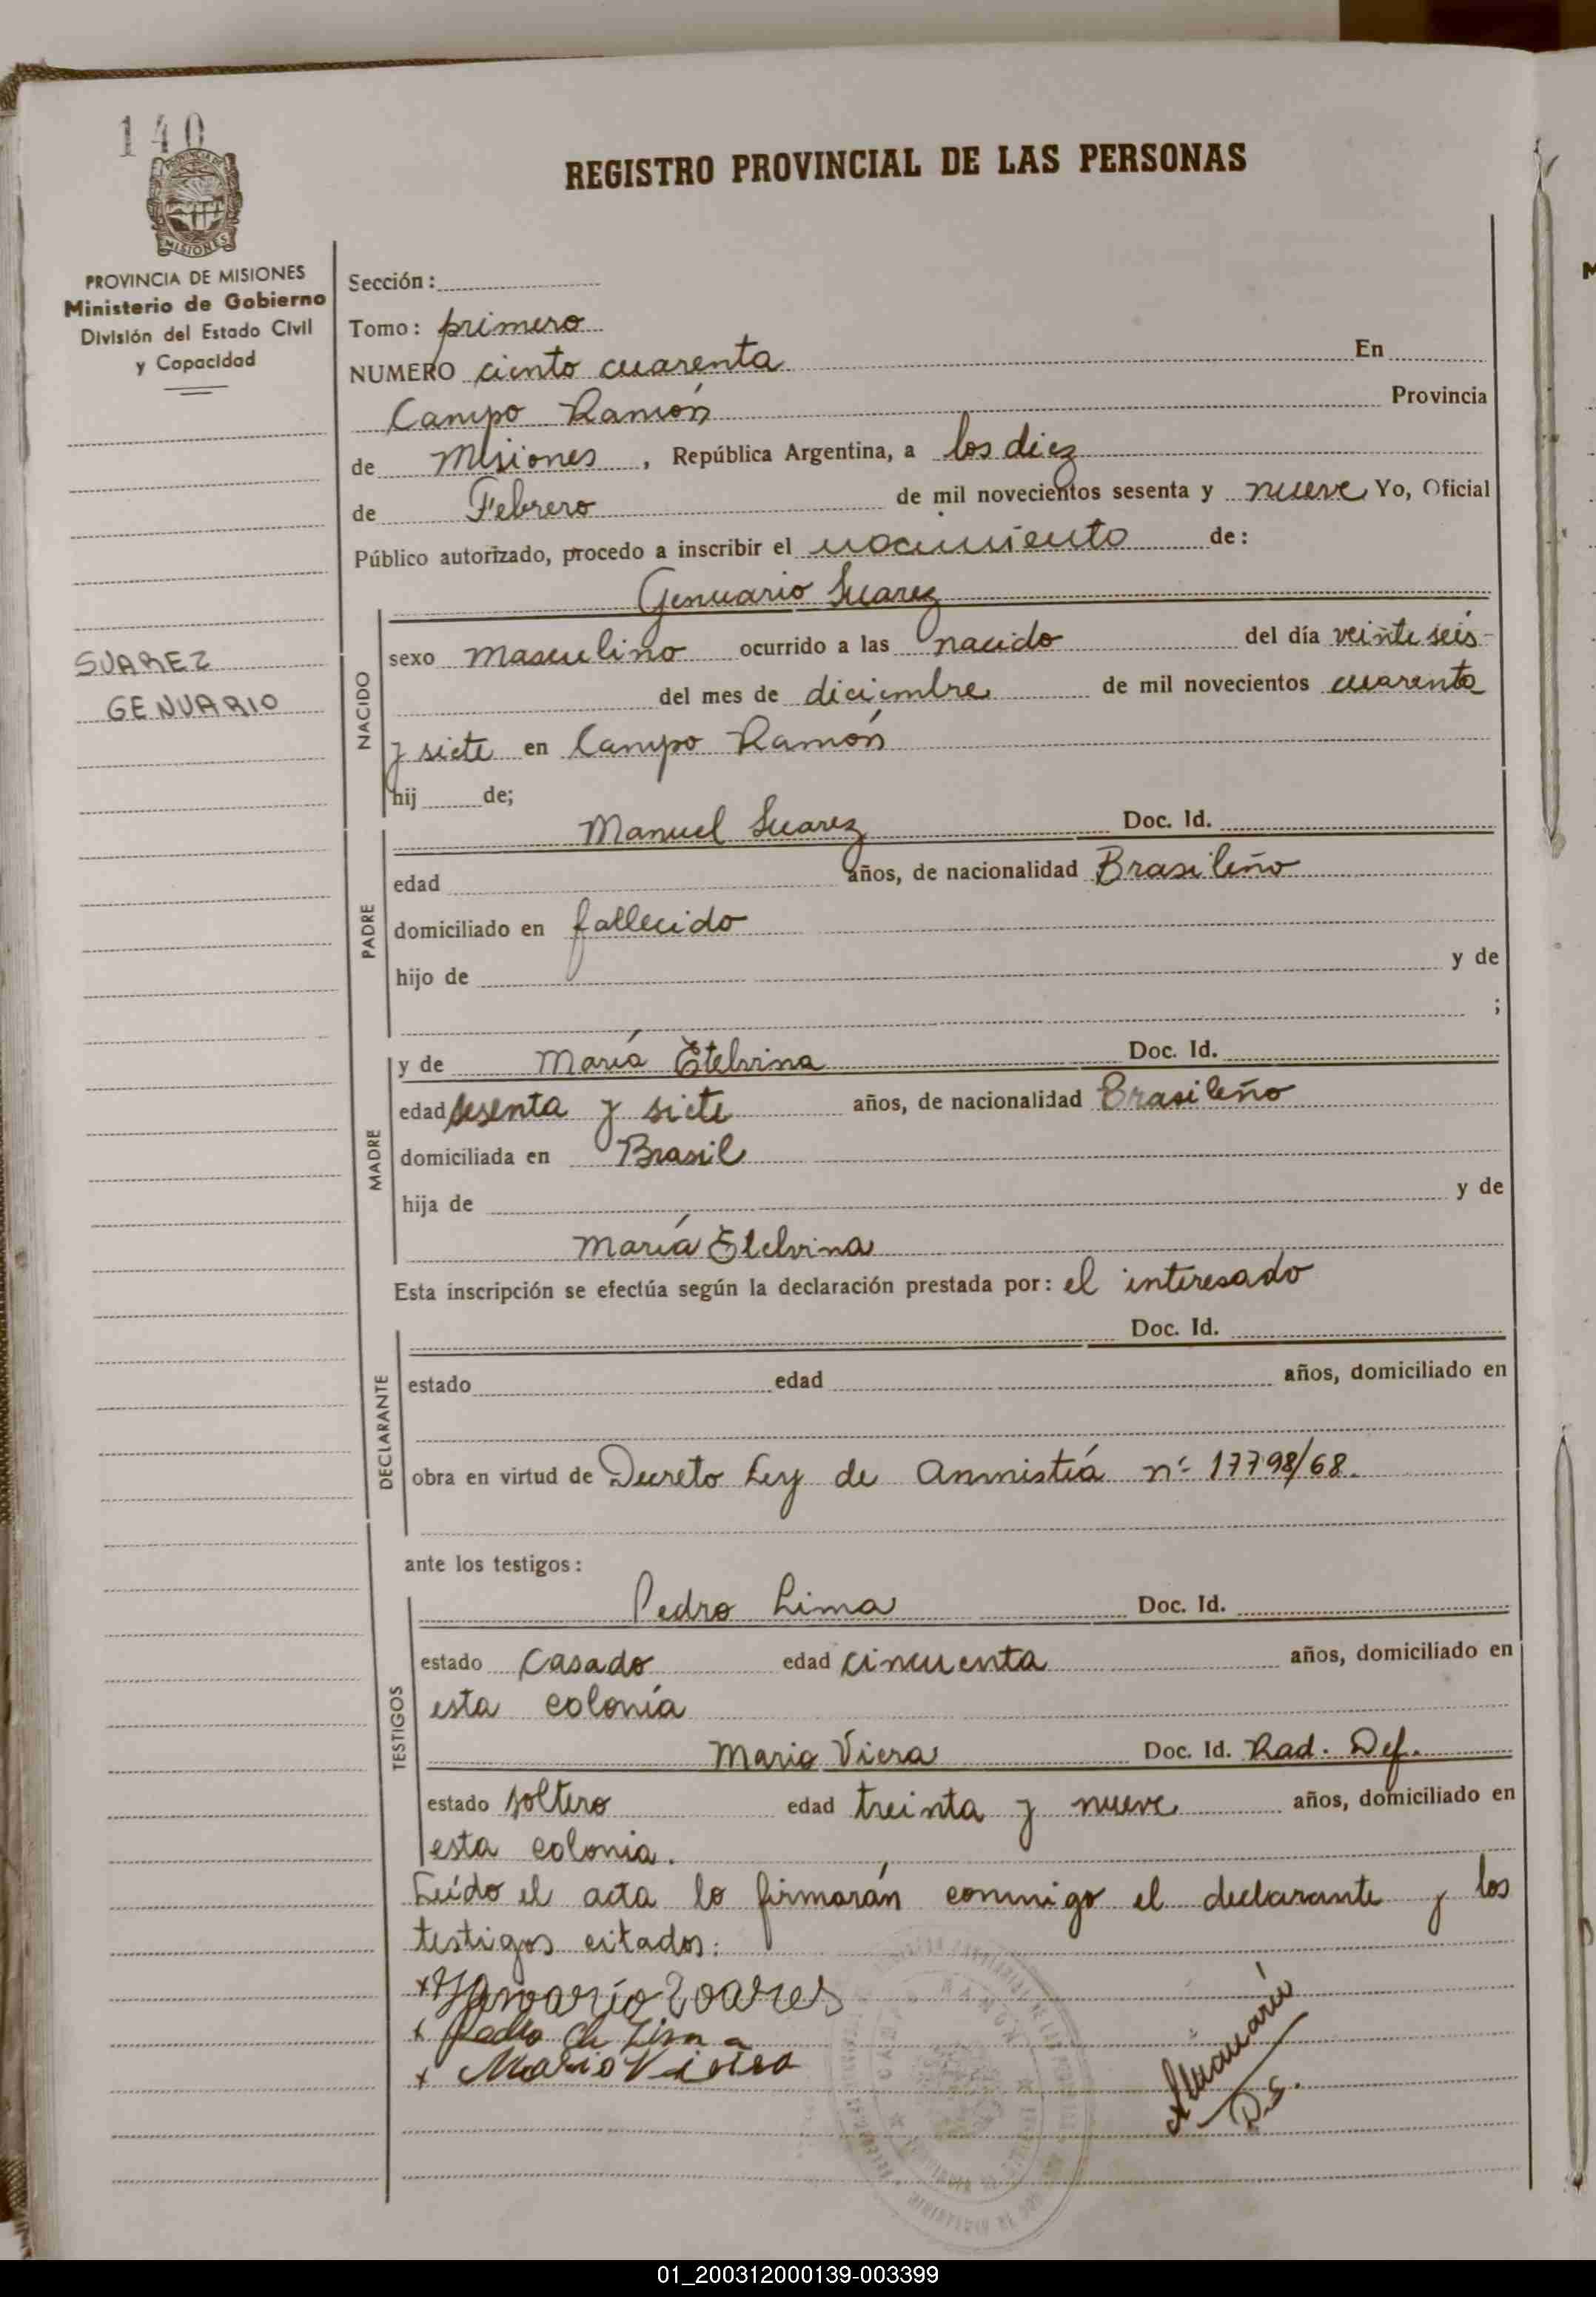 140
PROVINCIA DE MISIONES
Ministerio de Gobierno
División del Estado Civil
y Capacidad
SUAREZ
GENUARIO
REGISTRO PROVINCIAL DE LAS PERSONAS
Sección:
Tomo: primero
NUMERO ciento cuarenta En
Campo Ramón Provincia
de Misiones, República Argentina, a los diez
de Febrero de mil novecientos sesenta y nueve Yo, Oficial
Público autorizado, procedo a inscribir el nacimiento de:
Genuario Suarez
NACIDO
sexo masculino ocurrido a las nacido del día veinte seis
del mes de diciembre de mil novecientos cuarenta
y siete en Campo Ramón
hij de;
PADRE
Manuel Suarez Doc. Id.
edad años, de nacionalidad Brasileño
domiciliado en fallecido
hijo de y de
;
MADRE
y de María Etelvina Doc. Id.
edad sesenta y siete años, de nacionalidad Brasileño
domiciliada en Brasil
hija de y de
María Etelvina
Esta inscripción se efectúa según la declaración prestada por: el interesado
DECLARANTE
Doc. Id.
estado edad años, domiciliado en
obra en virtud de Decreto Ley de Amnistiá nº 17798/68.
ante los testigos:
TESTIGOS
Pedro Lima Doc. Id.
estado Casado edad cincuenta años, domiciliado en
esta colonía
Mario Viera Doc. Id. Rad. Def.
estado soltero edad treinta y nueve años, domiciliado en
esta colonia.
Leído el acta lo firmarán conmigo el declarante y los
testigos citados:
x Janoario Soares
x Pedro de Lima
x Mario Vieira
01_200312000139-003399